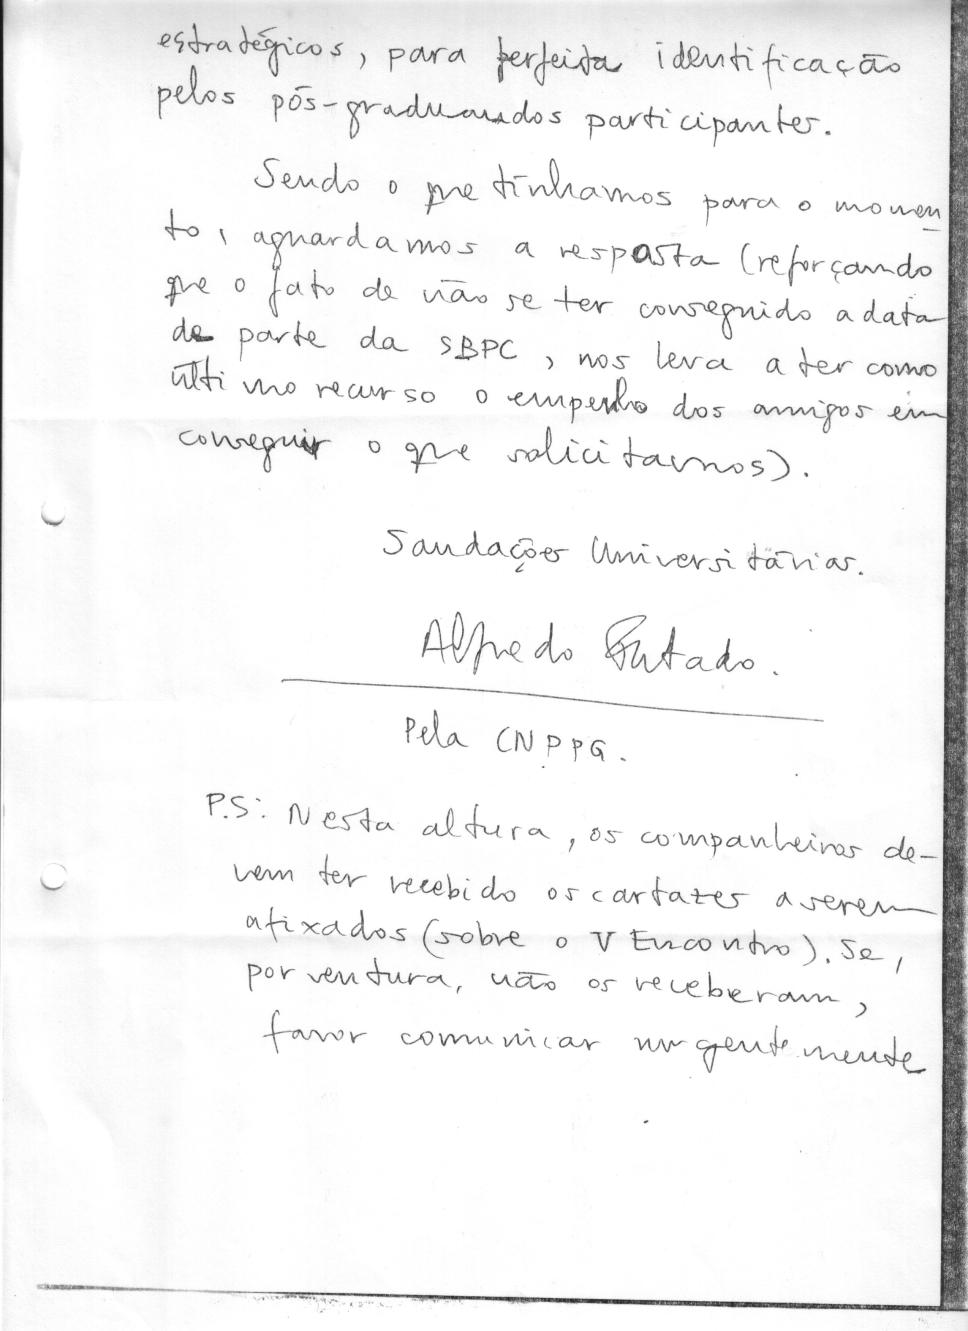 estratégicos, para perfeita identificação
pelos pós-graduandos participantes.
Sendo o que tínhamos para o momen
to, aguardamos a resposta (reforçando
que o fato de não se ter conseguido a data
de parte da SBPC, nos leva a ter como
último recurso o empenho dos amigos em
conseguir o que solicitamos).
Saudações Universitárias.
Alfredo Furtado.
Pela CNPPG.
P.S: Nesta altura, os companheiros de-
vem ter recebido os cartazes a serem
afixados (sobre o V Encontro). Se,
por ventura, não os receberam,
favor comunicar urgentemente